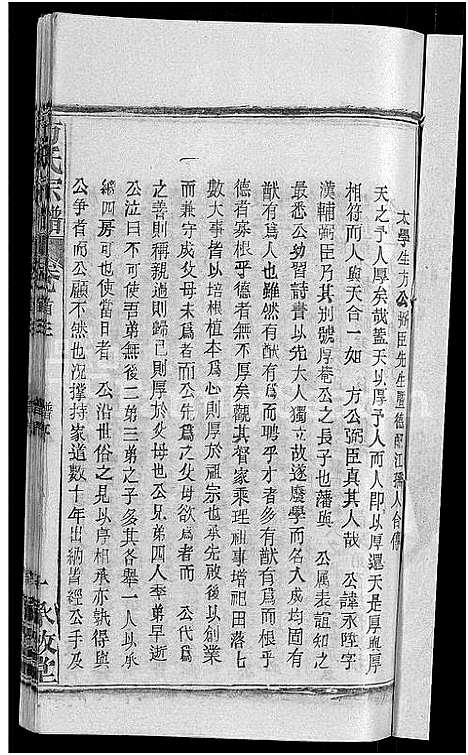 太學生方公弼臣先生暨德配江孺人合傳
天之予人厚矣哉蓋天以厚予人而人即以厚還天是厚與厚
相符而人與天合一如　方公弼臣真其人哉　公諱承陞字
漢輔弼臣乃其别號厚菴公之長子也藩與　公属表誼知之
最悉公幼習詩書以先大人獨立故遂廢學而大成均固有
猷有爲焉雖然有猷有爲而聘乎才者多有猷有爲而根乎
德者寡根乎德者無不厚矣觀其督家乘理祖事增祀田落七
數大事皆以培根植本爲心則厚於祖宗也承先啟後以創業
而兼守成父母未爲者而公先爲之父母欲爲者而　公代爲
之善則稱親過則歸已則厚於父母也公兄弟四人李弟早逝
公泣曰不可使吾弟無後二弟第三弟之子多其各舉一人以承
繼四房可也使當日者　公沿世俗之見以序相承亦孰得與
公爭者而公顧不然也况撑持家道數十年出納皆經公手及
方氏宗譜
卷首
譜序